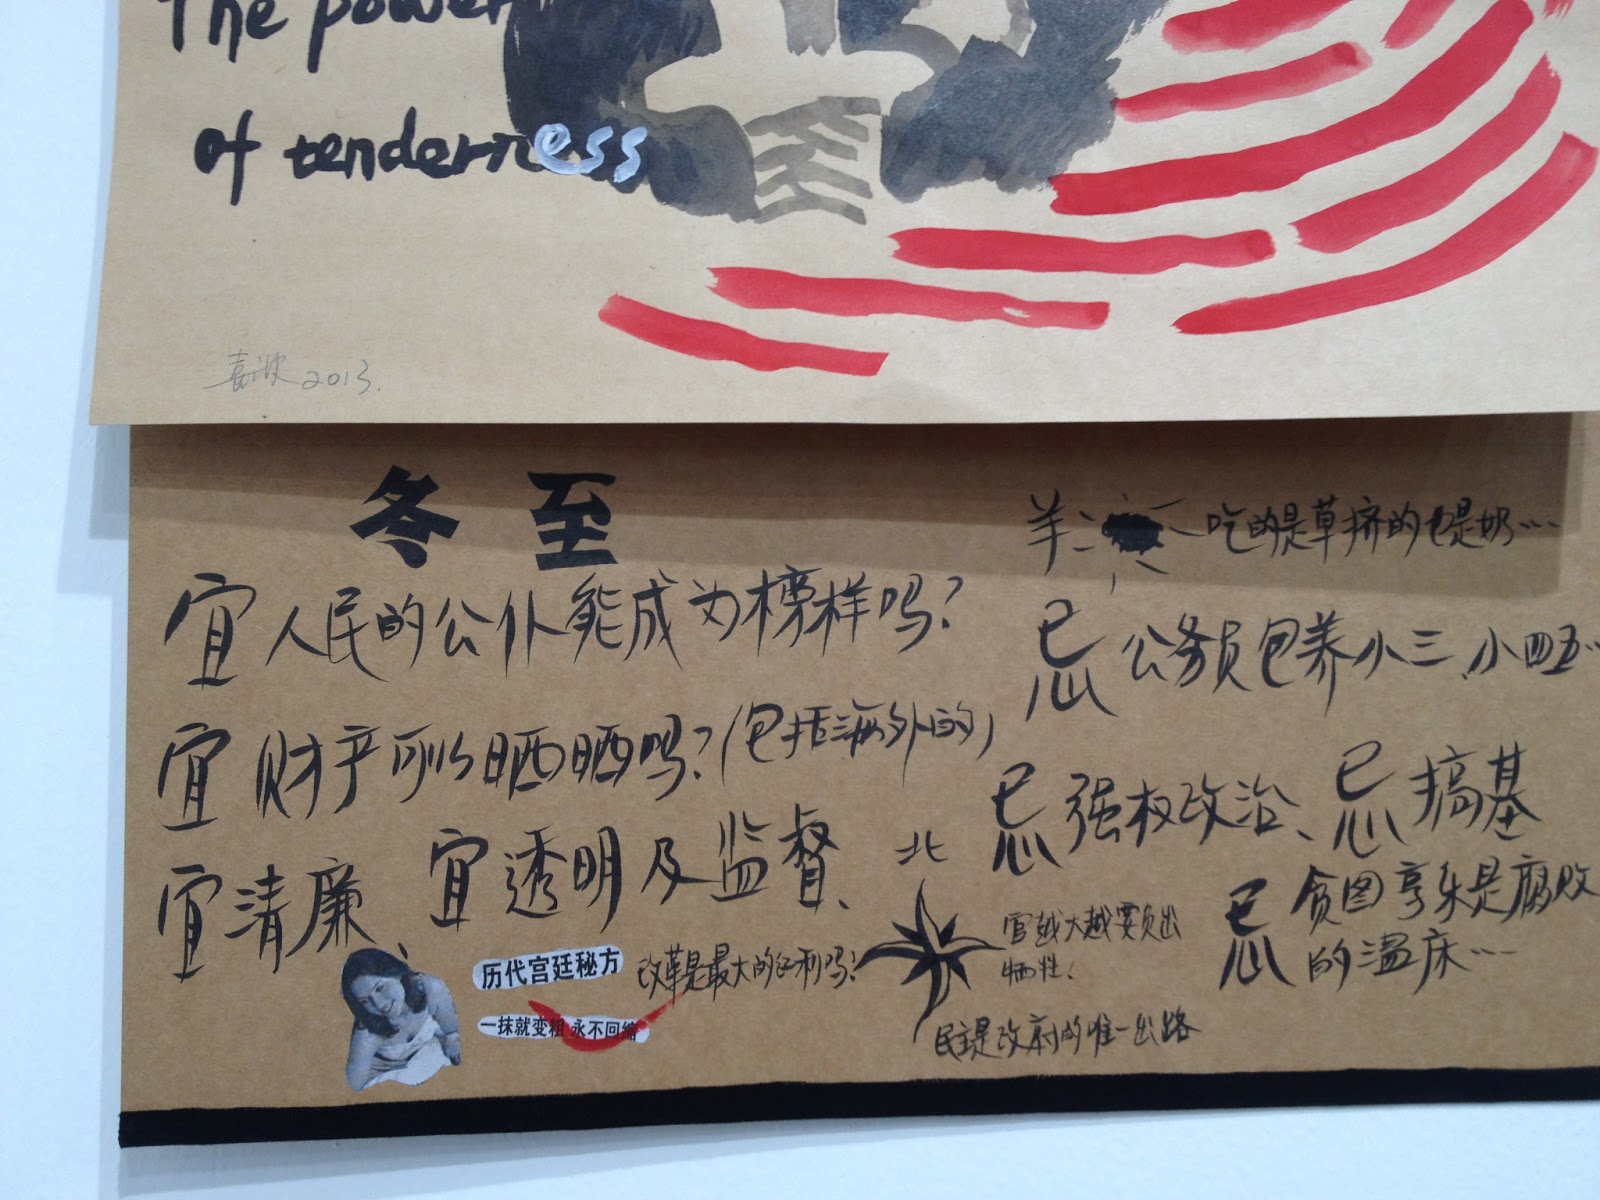 The power
of tenderness
喜波 2013.
冬至
宜人民的公仆能成为榜样吗?
宜财产可以晒晒吗?(包括海外的)
宜清廉、宜透明及监督、
历代宫廷秘方
一抹就变粗 永不回缩
改革是最大的红利吗?
羊: 吃的是草挤的也是奶…
忌公务员包养小三、小四五…
北
忌强权政治、忌搞基
忌贪图享乐是腐败
的温床…
官越大越要负出
牺牲!
民主是政府的唯一出路